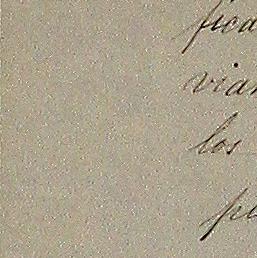 fica
vian
los
pl